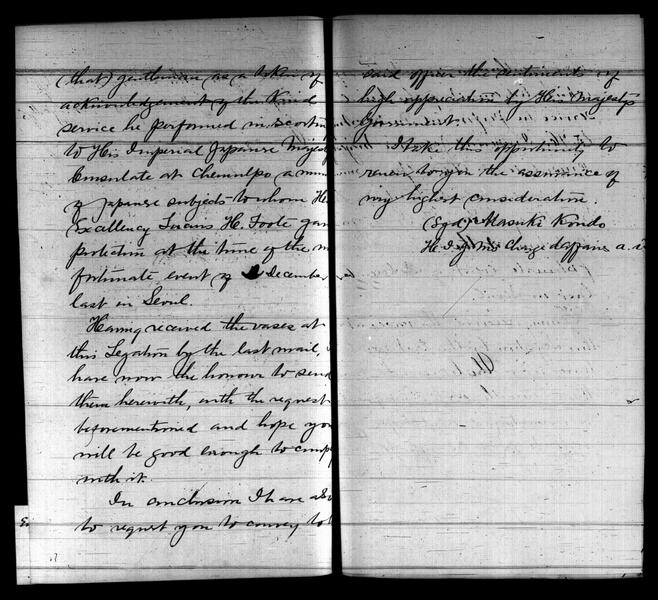 (that) gentleman as a token of
acknowledgement of the kind
service he performed in escortin
to His Imperial Japanese Majest
Consulate at Chemulpo a
of Japanese subjects to whom H
Excellency Lucius H. Foote gav
protection at the time of the
fortunate event of December
last in Seoul.
Having received the vases at
this Legation by the last mail,
have now the honour to send
them herewith, with the request
beforementioned and hope you
will be good enough to comp
with it.
In conclusion I have
to request you to convey to
said officer the sentiments of
high appreciation by His Majesty's
Government.
I take this opportunity to
renew to you the assurance of
my highest consideration.
(Sgd) Masuki Kondo
H. I. J. M's Chargé d'affaires a. i